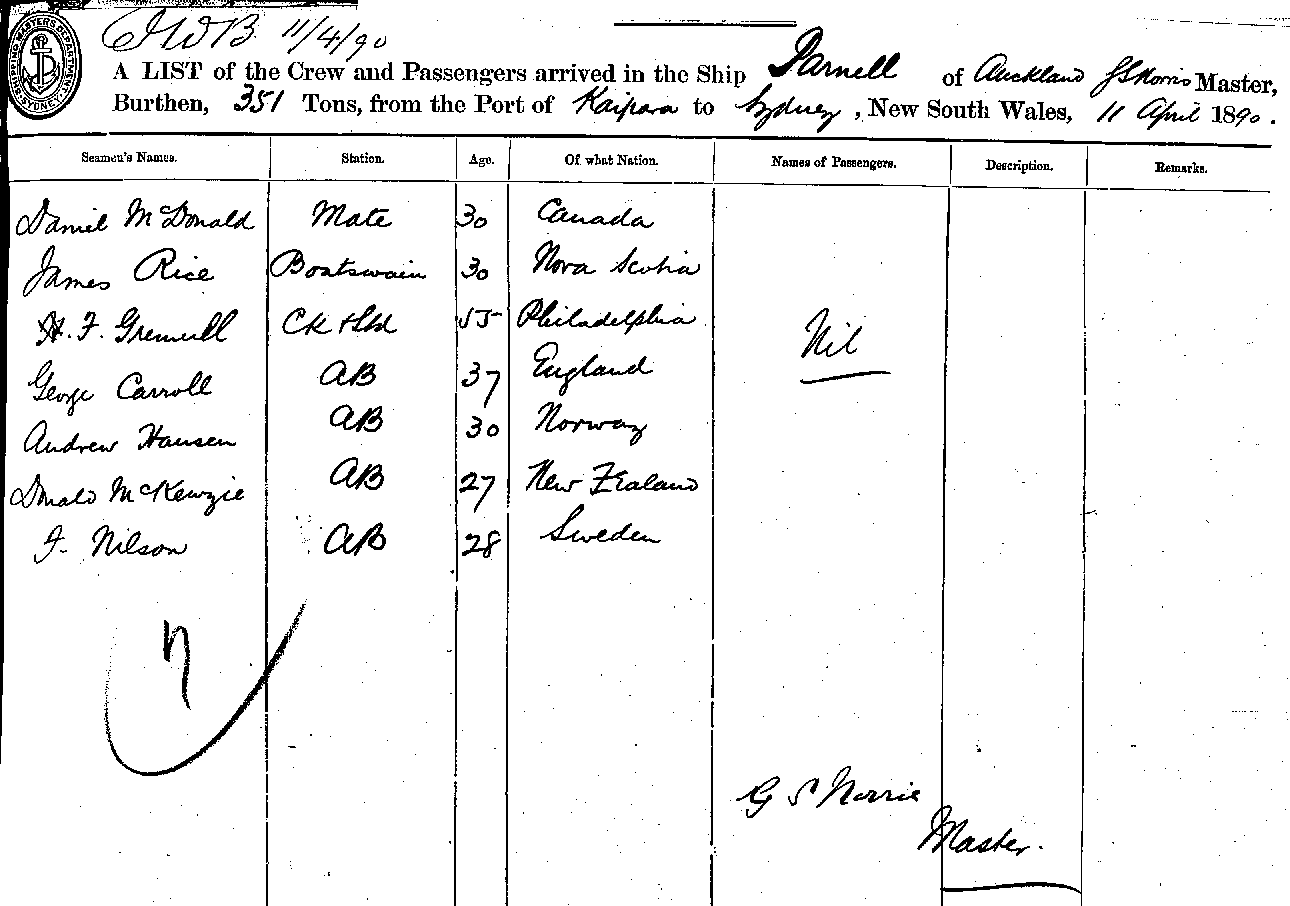 JWB 11/4/90
A LIST of the Crew and Passengers arrived in the Ship Parnell of Auckland GS Norris Master,
Burthen, 351 Tons, from the Port of Kaipara to Sydney, New South Wales, 11 April 1890.
Seamen's Names. Station. Age. Of what Nation. Names of Passengers. Description. Remarks.
Daniel McDonald Mate 30 Canada
James Rice Boatswain 30 Nova Scotia
H. F. Ck & Std 55 Philadelphia
Nil
George Carroll AB 37 England
Andrew Hansen AB 30 Norway
Donald McKenzie AB 27 New Zealand
F. Nilson AB 28 Sweden
7
G S Norrie
Master.